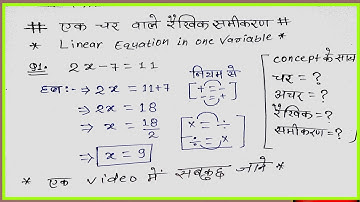 # एक चर वाले रैखिक समीकरण #
* Linear Equation in one Variable *
Q1. 2x-7=11
हल:- ⇒ 2x = 11+7
⇒ 2x = 18
⇒ x = 18/2
⇒ x = 9
नियम से
+ = -
- = +
× = ÷
÷ = ×
concept के साथ
चर = ?
अचर = ?
रैखिक = ?
समीकरण = ?
* एक video में सबकुछ जाने *